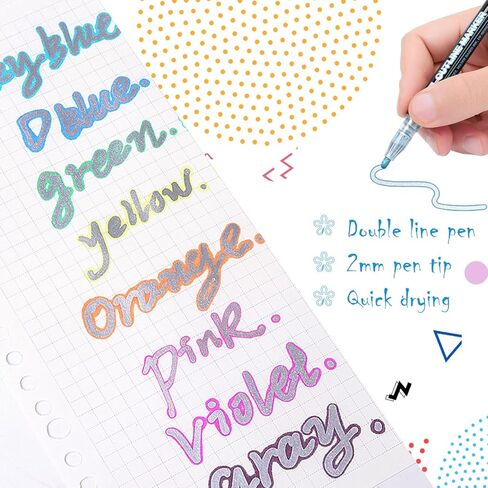 y blue
D blue.
green.
yellow.
orange.
pink.
violet.
gray.
OUTLINE MARKER
Double line pen
2mm pen tip
Quick drying